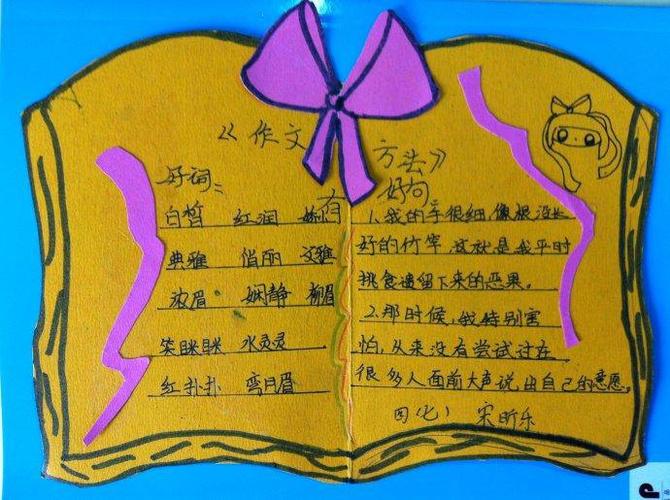 《作文方法》
好词:
白皙 红润
典雅 俏丽 文雅
浓眉 娴静 柳眉
笑眯眯 水灵灵
红扑扑 弯月眉
好句
1.我的手很细,像根没长
好的竹竿,这就是我平时
挑食遗留下来的恶果。
2.那时候,我特别害
怕,从来没有尝试过在
很多人面前大声说出自己的意愿。
四(七) 宋昕乐